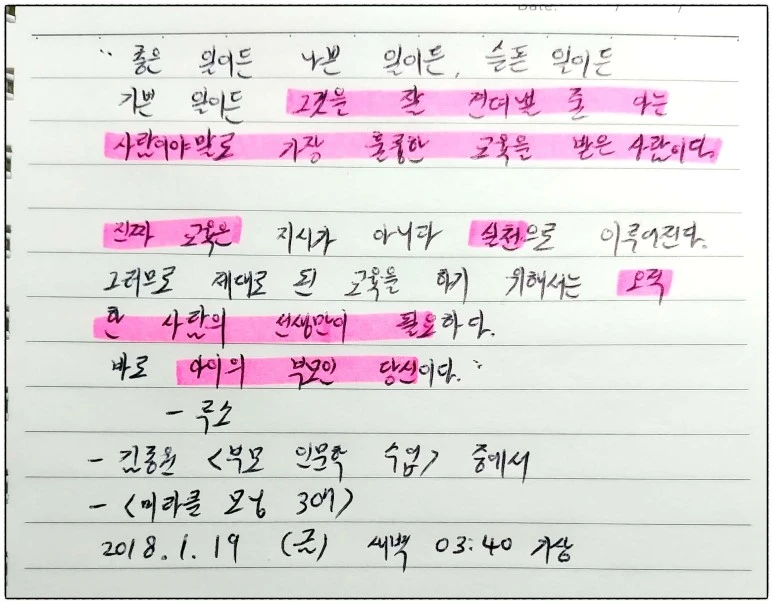 Date:
“ 좋은 일이든 나쁜 일이든, 슬픈 일이든
기쁜 일이든 그것을 잘 견뎌낼 줄 아는
사람이야말로 가장 훌륭한 교육을 받은 사람이다.
진짜 교육은 지시가 아니다 실천으로 이루어진다.
그러므로 제대로 된 교육을 하기 위해서는 오직
한 사람의 선생만이 필요하다.
바로 아이의 부모인 당신이다.”
- 루소
- 김종원 <부모 인문학 수업> 중에서
- <미라클 모닝>
2018. 1. 19 (금) 새벽 03:40 기상